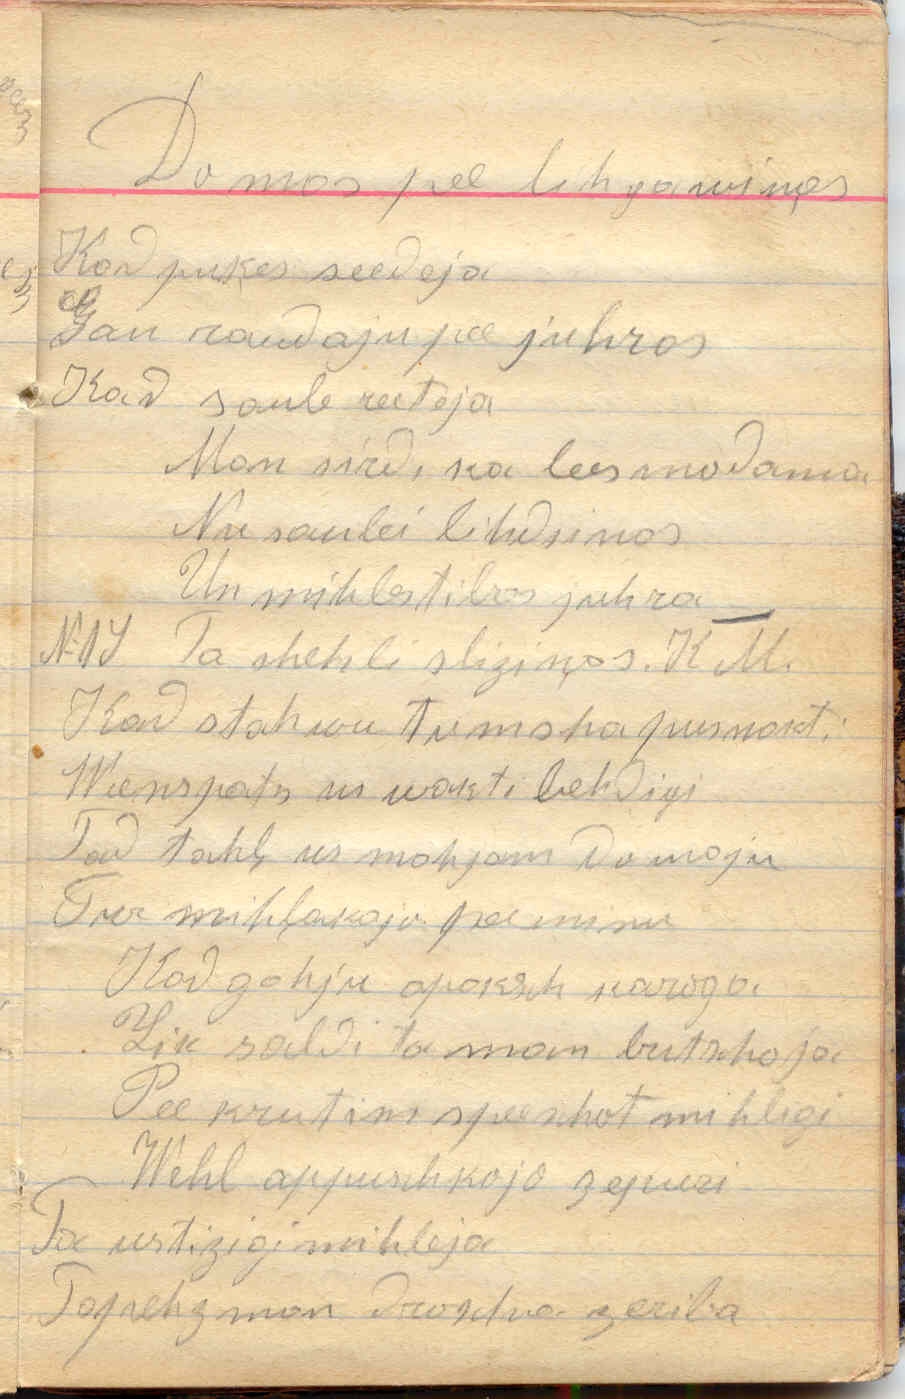 Domas pee lihgawiņas
Kad pukes seedeja
Gan raudaju pee juhras
Kad saule reeteja
Man sird, ka leesmodama
Nu saulei lihdsinas
Un mihlestibas juhra
Ta shehli sliziņas. K. M.
Kad stahwu tumsha pusnakti
Weenspats us wakti behdigi
Tad tahļ us mahjam domaju
Tur mihļakaja pee minu
Kad gahju apaksch karoga
Zik saldi ta man butschoja
Pee krutim speeschot mihligi
Wehl appuschkojo zepuri
Ta ustizigi mihleja
Tapehz man droscha zeriba